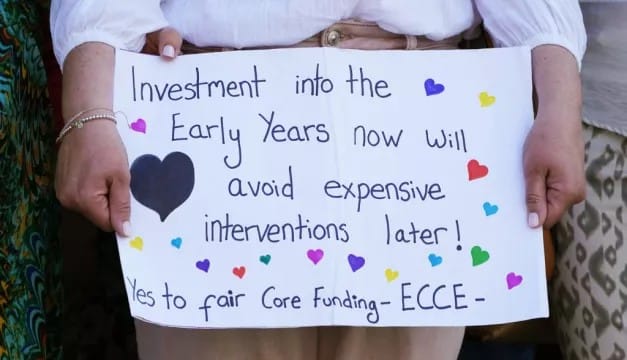 Investment into the
Early Years now will
avoid expensive
interventions later!
Yes to fair Core Funding - ECCE -